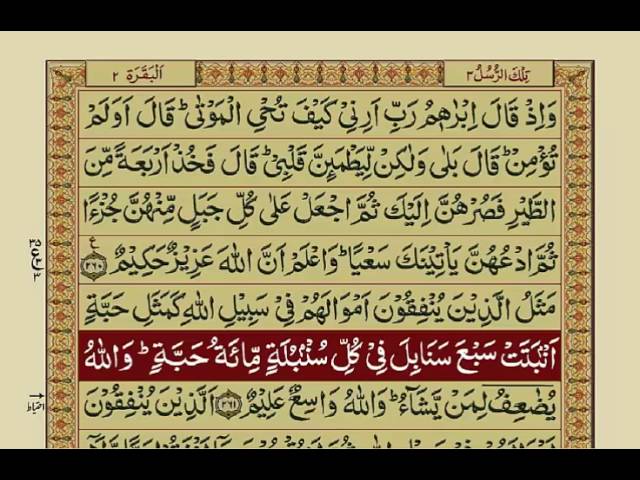 تِلْكَ الرُّسُلُ ٣
اَلْبَقَرَة ٢
وَاِذْ قَالَ اِبْرٰهٖمُ رَبِّ اَرِنِیْ كَیْفَ تُحْیِ الْمَوْتٰیؕ قَالَ اَوَلَمْ
تُؤْمِنْؕ قَالَ بَلٰی وَلٰكِنْ لِّیَطْمَىِٕنَّ قَلْبِیْؕ قَالَ فَخُذْ اَرْبَعَةً مِّنَ
الطَّیْرِ فَصُرْهُنَّ اِلَیْكَ ثُمَّ اجْعَلْ عَلٰی كُلِّ جَبَلٍ مِّنْهُنَّ جُزْءًا
ثُمَّ ادْعُهُنَّ یَاْتِیْنَكَ سَعْیًاؕ وَاعْلَمْ اَنَّ اللّٰهَ عَزِیْزٌ حَكِیْمٌ ۝۲۶۰ ع
مَثَلُ الَّذِیْنَ یُنْفِقُوْنَ اَمْوَالَهُمْ فِیْ سَبِیْلِ اللّٰهِ كَمَثَلِ حَبَّةٍ
اَنْۢبَتَتْ سَبْعَ سَنَابِلَ فِیْ كُلِّ سُنْۢبُلَةٍ مِّائَةُ حَبَّةٍؕ وَاللّٰهُ
یُضٰعِفُ لِمَنْ یَّشَآءُؕ وَاللّٰهُ وَاسِعٌ عَلِیْمٌ ۝۲۶۱ اَلَّذِیْنَ یُنْفِقُوْنَ
احتیاط